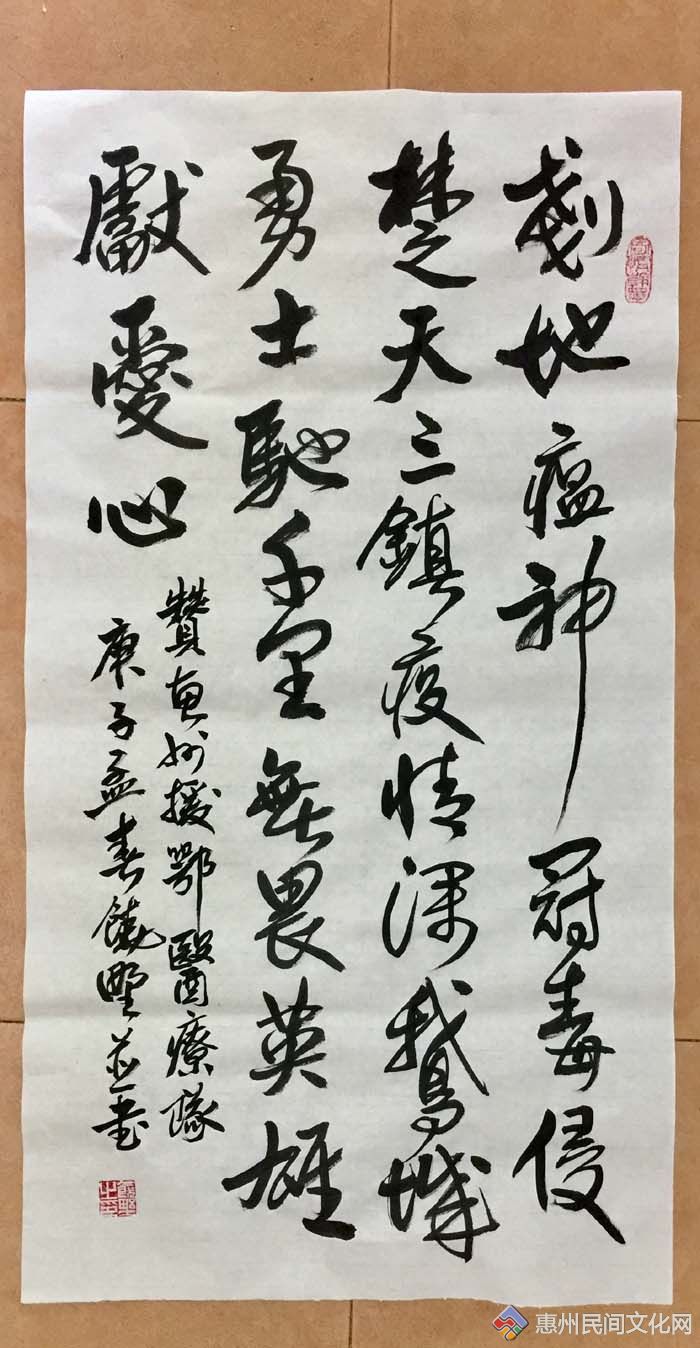 剗地瘟神冠毒侵
楚天三鎮疫情深鵝城
勇士馳千里無畏英雄
獻愛心
贊惠州援鄂醫療隊
庚子孟春饒野並書
惠州民间文化网